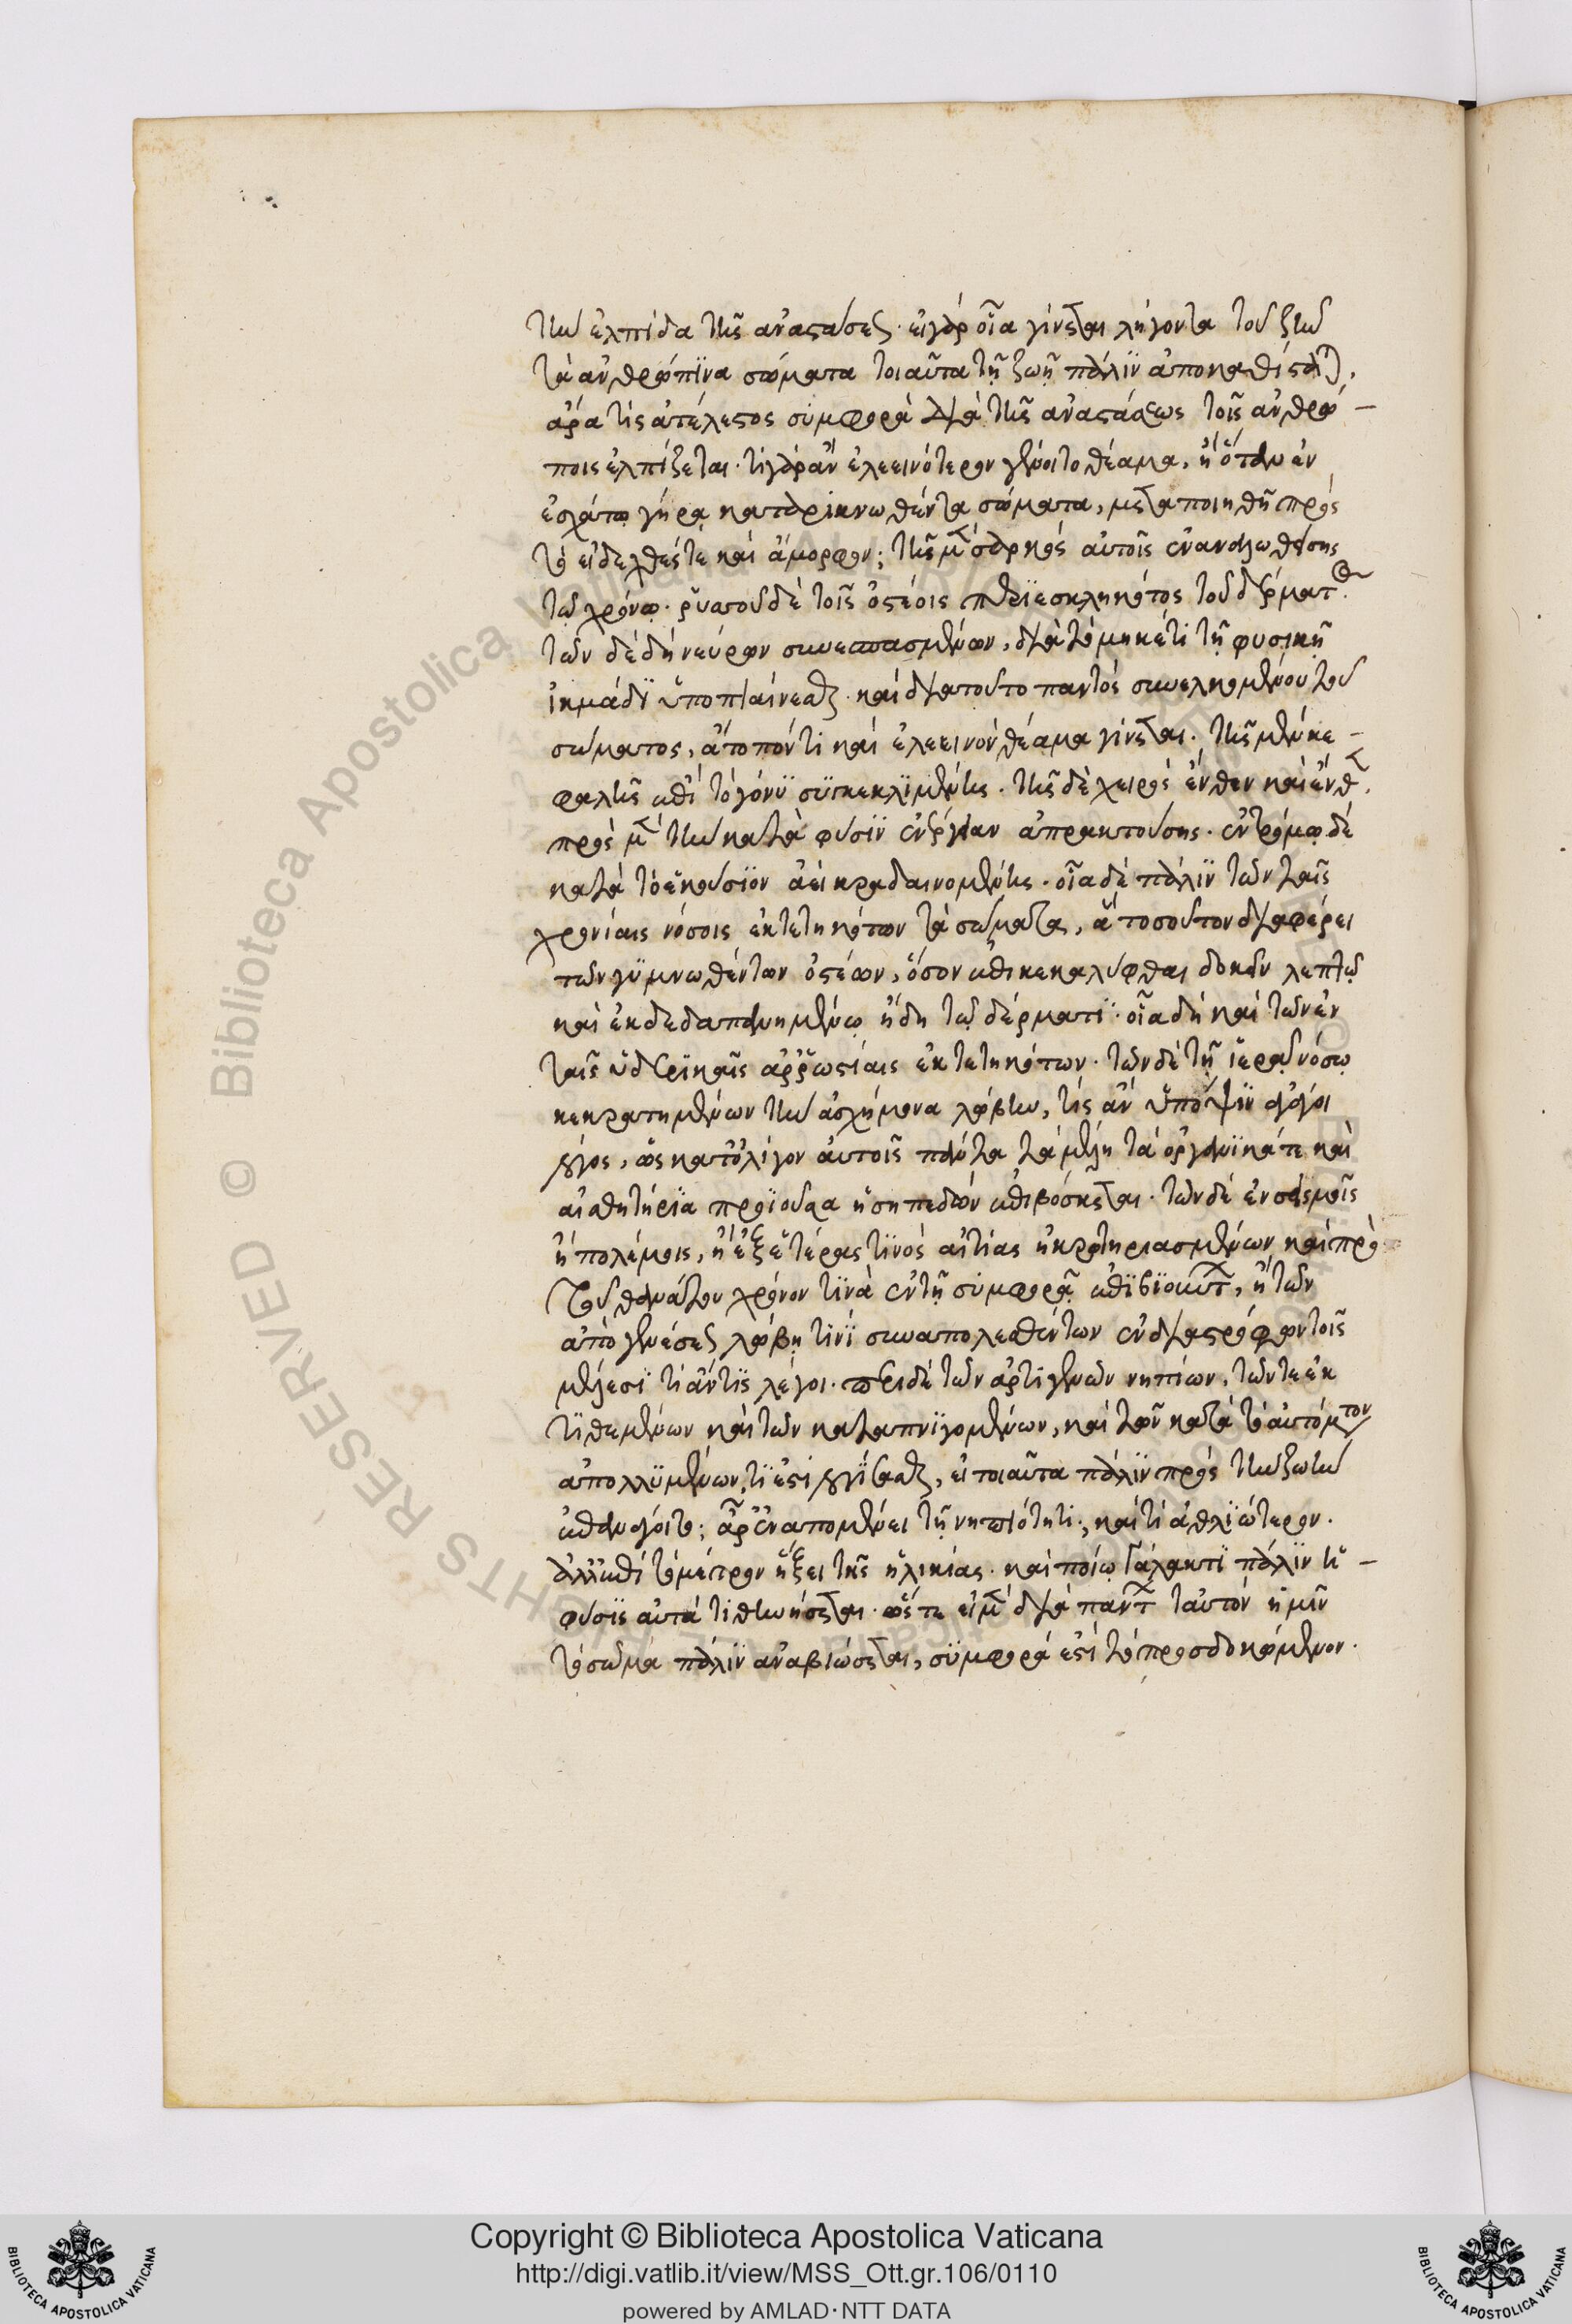 τὴν ἐλπίδα τῆς ἀναστάσεως. εἰ γὰρ οἷα γίνεται λήγοντα τοῦ ζῆν
τὰ ἀνθρώπϊνα σώματα τοιαῦτα τῇ ζωῇ πάλϊν ἀποκαθίσταται,
ἄρα τὶς ἀτέλεστος συμφορὰ διὰ τῆς ἀναστάσεως τοῖς ἀνθρώ-
ποις ἐλπίζεται. τί γὰρ ἂν ἐλεεινότερον γένοιτο θέαμα, ἢ ὅταν ἐν
ἐσχάτῳ γήρᾳ καταρικνωθέντα σώματα, μεταποιηθῇ πρὸς
τὸ εἰδεχθές τε καὶ ἄμορφον; τῆς μὲν σαρκὸς αὐτοῖς ἐναναλωθείσης
τῷ χρόνῳ. ῥυσοῦ δὲ τοῖς ὀστέοις περϊεσκληκότος τοῦ δέρματος.
τῶν δὲ δὴ νεύρων συνεσπασμένων, διὰ τὸ μηκέτι τῇ φυσικῇ
ἰκμάδϊ ὑποπιαίνεσθαι. καὶ διὰ τοῦτο παντὸς συνελκομένου τοῦ
σώματος, ἄτοπόν τι καὶ ἐλεεινὸν θέαμα γίνεται. τῆς μὲν κε-
φαλῆς ἐπὶ τὸ γόνϋ συγκεκλϊμένης. τῆς δὲ χειρὸς ἔνθεν καὶ ἔνθεν
πρὸς μὲν τὴν κατὰ φύσϊν ἐνέργειαν ἀπρακτούσης. ἐν τρόμῳ δὲ
κατὰ τὸ ἑκούσϊον ἀεὶ κραδαινομένης. οἷα δὲ πάλϊν τῶν ταῖς
χρονίαις νόσοις ἐκτετηκότων τὰ σώματα, ἃ τοσοῦτον διαφέρει
τῶν γϋμνωθέντων ὀστέων, ὅσον ἐπικεκαλύφθαι δοκεῖν λεπτῷ
καὶ ἐκδεδαπανημένῳ ἤδη τῷ δέρματϊ. οἷα δὴ καὶ τῶν ἐν
ταῖς ὑδερϊκαῖς ἀρρωστίαις ἐκτετηκότων. τῶν δὲ τῇ ἱερᾷ νόσῳ
κεκρατημένων τὴν ἀσχήμονα λώβην, τίς ἂν ὑπ' ὄψϊν ἀγάγοι
λόγος, ὡς κατ' ὀλίγον αὐτοῖς πάντα τὰ μέλη τὰ ὀργανϊκά τε καὶ
αἰσθητήρϊα προϊοῦσα ἡ σηπεδὼν ἐπιβόσκεται. τῶν δὲ ἐν σεισμοῖς
ἢ πολέμοις, ἢ ἐξ ἑτέρας τϊνὸς αἰτίας ἠκρωτηριασμένων καὶ πρὸ
τοῦ θανάτου χρόνον τϊνὰ ἐν τῇ συμφορᾷ ἐπϊβϊούντων, ἢ τῶν
ἀπὸ γενέσεως λώβῃ τϊνϊ συναπολεσθέντων ἐν διαστρόφοις τοῖς
μέλεσϊ τί ἄν τϊς λέγοι. περὶ δὲ τῶν ἀρτιγενῶν νηπίων, τῶν τε ἐκ
τϊθεμένων καὶ τῶν καταπνϊγομένων, καὶ τῶν κατὰ τὸ αὐτόματον
ἀπολλϋμένων, τϊ ἐστὶ λογϊσασθαι, εἰ τοιαῦτα πάλϊν πρὸς τὴν ζωὴν
ἐπανάγοιτο; ἆρ' ἐναπομένει τῇ νηπϊότητι., καὶ τί ἀθλϊώτερον.
ἀλλ' ἐπὶ τὸ μέτρον ἥξει τῆς ἡλικίας. καὶ ποίῳ γάλακτϊ πάλϊν ἡ-
φύσϊς αὐτὰ τιθηνήσεται. ὥστε εἰ μὲν διὰ πάντων ταὐτὸν ἡμῖν
τὸ σῶμα πάλϊν ἀναβιώσεται, σϋμφορά ἐστὶ τὸ προσδοκώμενον.
Copyright © Biblioteca Apostolica Vaticana
http://digi.vatlib.it/view/MSS_Ott.gr.106/0110
powered by AMLAD·NTT DATA